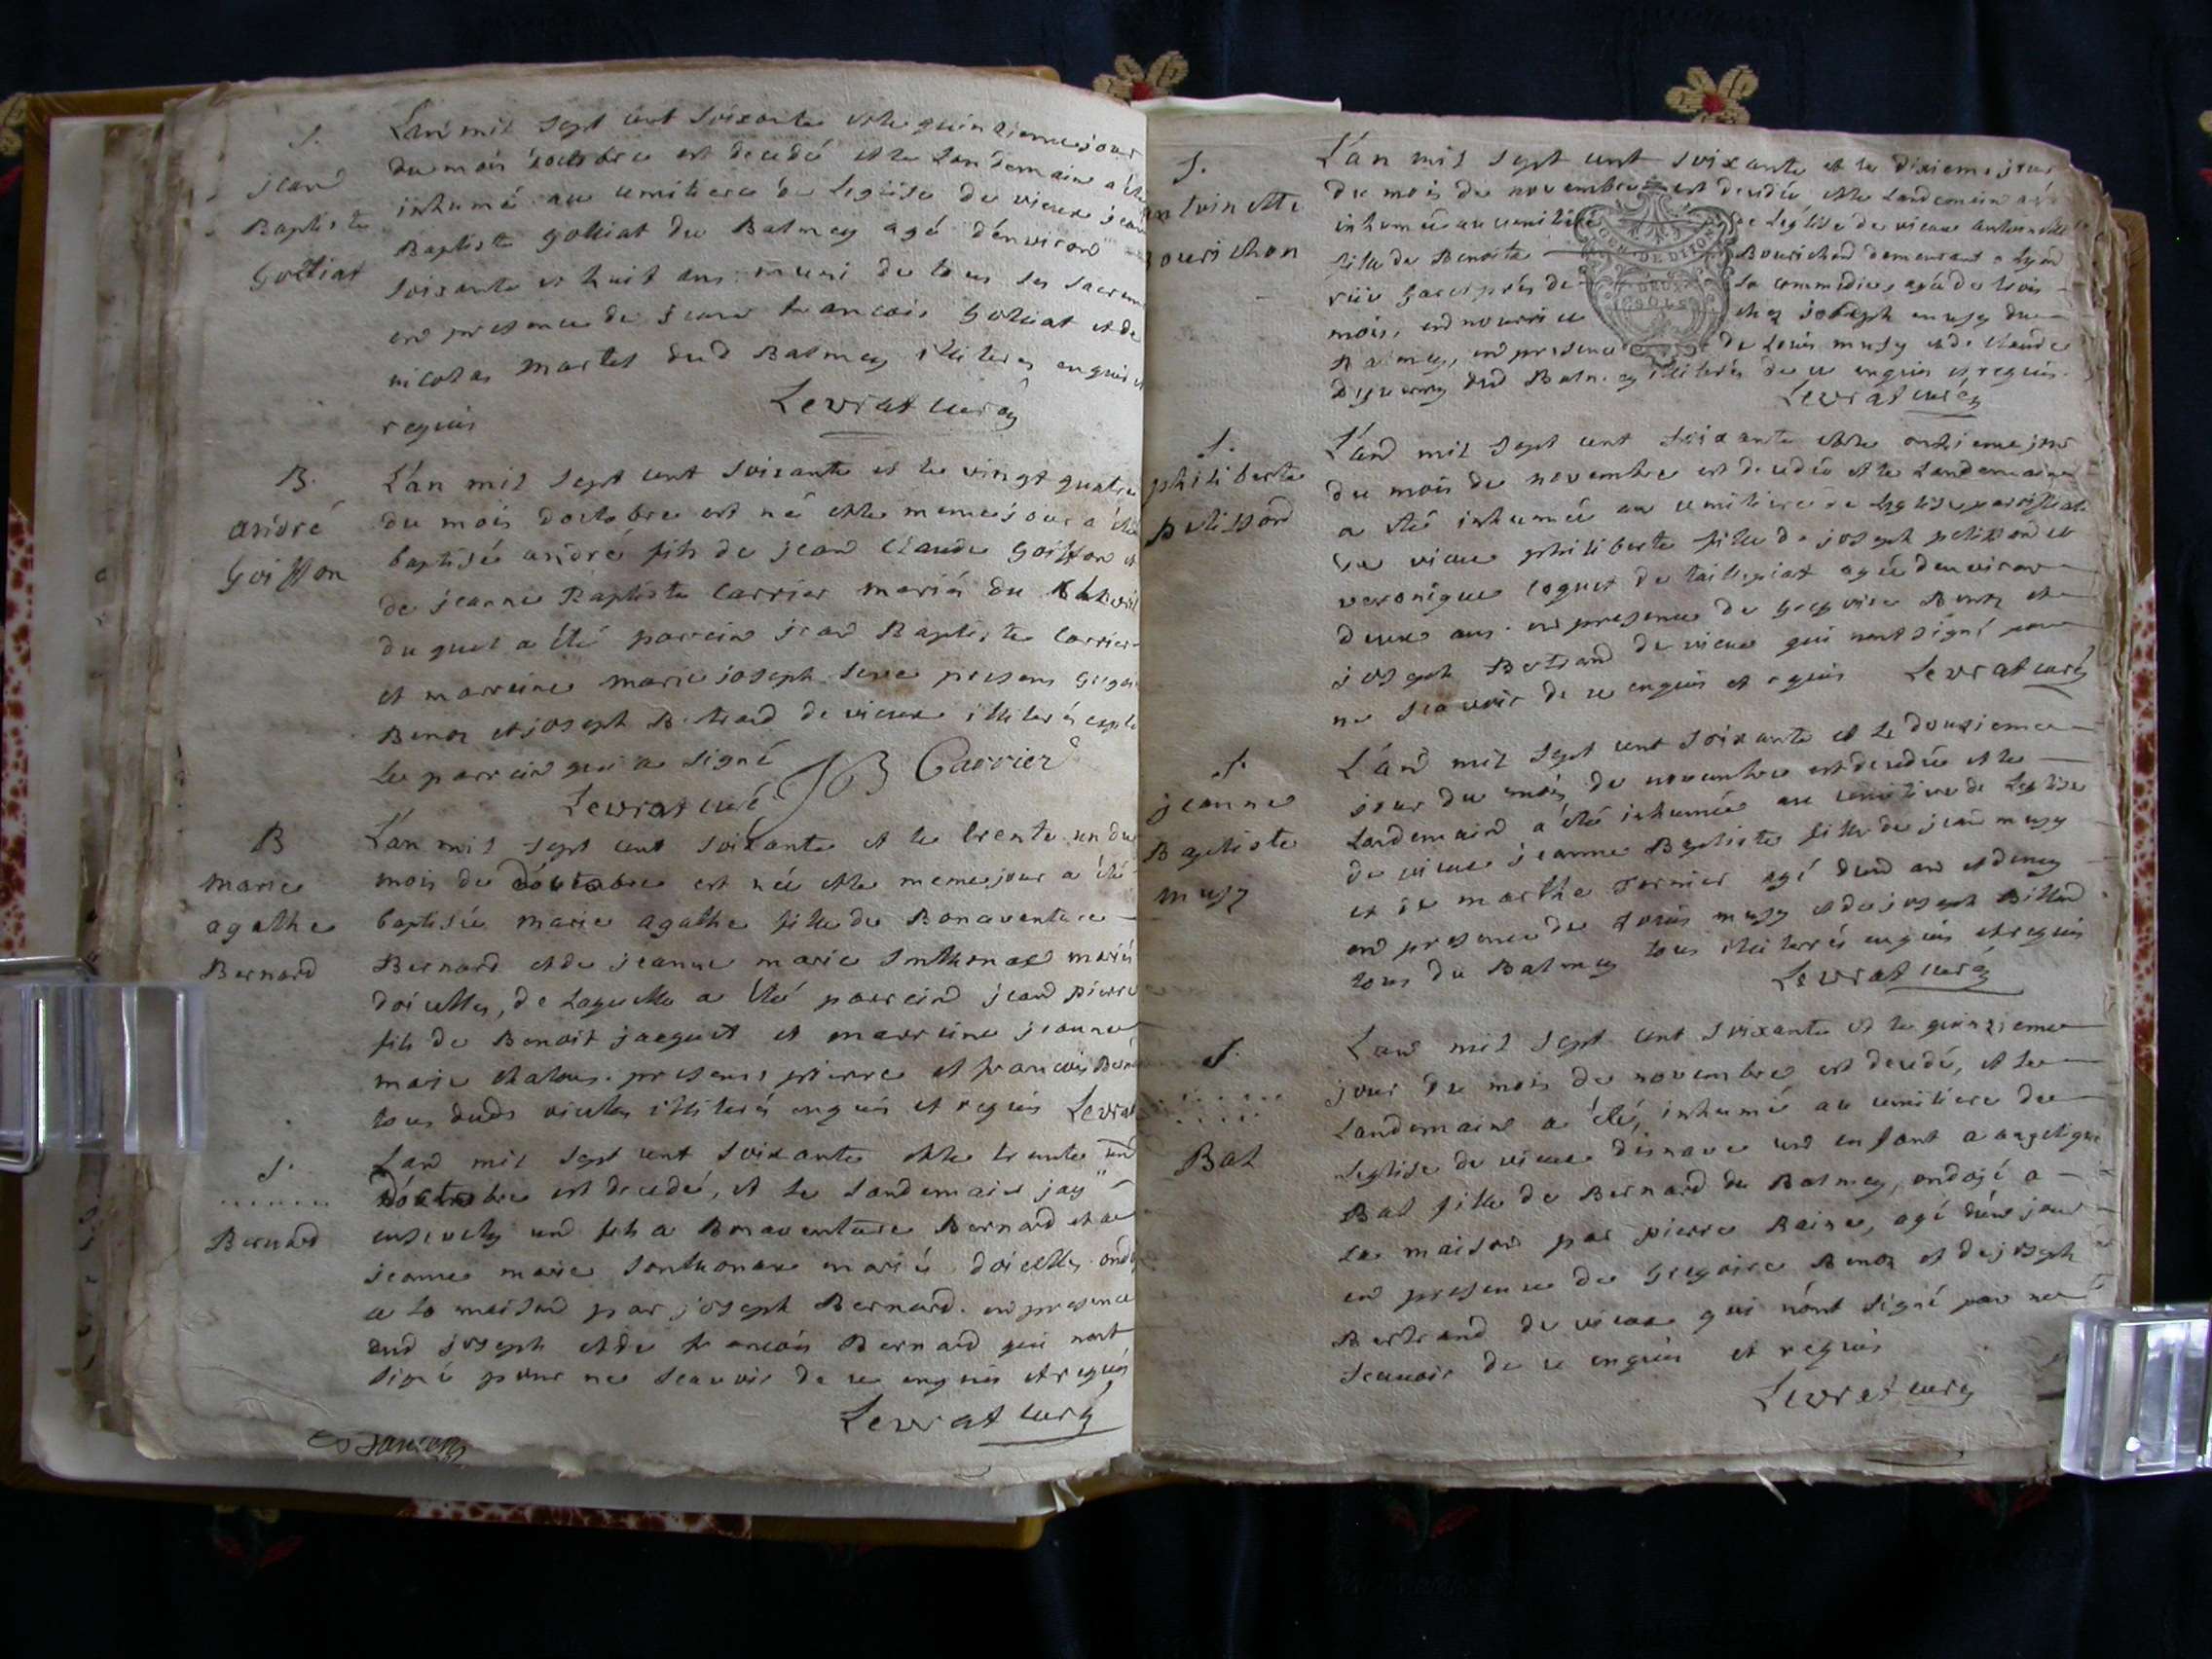 S.
jean
Baptiste
Golliat
Lan mil sept cent soixante et le quinziemejour
du mois doctobre est decedé et le Landemain a été
inhumé au cemitiere de Leglise de vieux jean
Baptiste golliat du Balmey agé dénviron
soixante et huit ans muni de tous les sacrem
en presence de jean francois Golliat et de
nicolas martel dud Balmey illiteres enquis et
requis
Levrat curé
B.
andré
Goiffon
L'an mil sept cent soixante et le vingt quatre
du mois doctobre est né et le meme jour a été
baptisé andré fils de jean claude Goiffon et
de jeanne Baptiste Carrier mariés du
duquel a été parrein jean Baptiste Carrier
et marreine marie joseph presens Gregoi
Benoz et joseph Bertrand de vieux illiterés excepte
le parrein qui a signé
JB Carrier
Levrat curé
B
marie
agathe
Bernard
L'an mil sept cent soixante et le trente un du
mois de doctobre est née et le meme jour a été
baptisée marie agathe fille de Bonaventure
Bernard et de jeanne marie Sonthonax mariés
doicelles, de Laquelle a été parrein jean pierre
fils de Benoit jacquet et marreine jeanne
marie chatoux. presens pierre et francois Bern
tous duds illiterés enquis et requis Levrat
S.
......
Bernard
Lan mil sept cent soixante et le trente un
doctobre est decedé, et le landemain jay
ensevely un fils a Bonaventure Bernard et a
jeanne marie Sonthonax mariés doicelles ondo
a la maison par joseph Bernard. en presence
dud joseph et de francois Bernard qui nont
signé pour ne scavoir de ce enquis et requis
Levrat curé
S.
antoinette
Bourichon
L'an mil sept cent soixante et le dixieme jour
du mois de novembre est decedée et le landemain a été
inhumée au cemitiere de Leglise de vieux antoinette
fille de Benoite Bourichon demeurant a Lyon
rüe près de la commedie, agée de trois
mois, en nourrice chez joseph musy du
Balmey, en presence de Louis musy et de claude
dud Balmey illiterés de ce enquis et requis.
Levrat curé
S.
philiberte
pelisson
L'an mil sept cent soixante et le onzieme jour
du mois de novembre est decedée et le Landemain
a été inhumée au cemitiere de Leglise paroissiale
de vieux philiberte fille de joseph pelisson et
veronique coquet de agée denviron
deux ans. en presence de gregoire Benoz et
joseph Bertrand de vieux qui nont signé pour
ne scavoir de ce enquis et requis Levrat curé
S.
jeanne
Baptiste
musy
L'an mil sept cent soixante et le douzieme
jour du mois de novembre est decedée et le
Landemain a été inhumée au cemitiere de Leglise
de vieux jeanne Baptiste fille de jean musy
et de marthe Tornier agé dun an et demy
en presence de Louis musy et de joseph Billion
tous du Balmey tous illiterrés enquis et requis
Levrat curé
S.
......
Bal
Lan mil sept cent soixante et le quinzieme
jour du mois de novembre est decedé, et le
Landemain a été, inhumé au cemitiere de
Leglise de vieux disnave un enfant a angelique
Bal fille de Bernard du Balmey, ondoié a
la maison par pierre Raine, agé d'un jour
en presence de Gregoire Benoz et de joseph
Bertrand de vieux qui nónt signé pour ne
scavoir de ce enquis et requis
Levrat curé